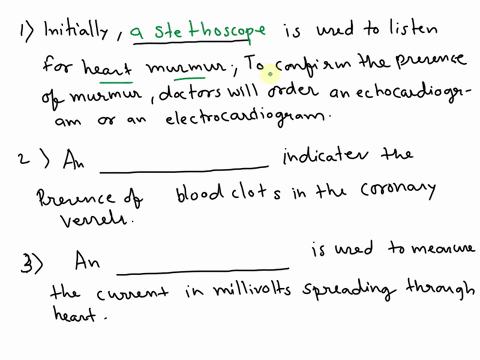 1) Initially, a stethoscope is used to listen
for heart murmur; To confirm the presence
of murmur, doctors will order an echocardiogr-
am or an electrocardiogram.
2) An ____________ indicates the
Presence of blood clots in the coronary
vessels.
3) An ____________ is used to measure
the current in millivolts spreading through
heart.